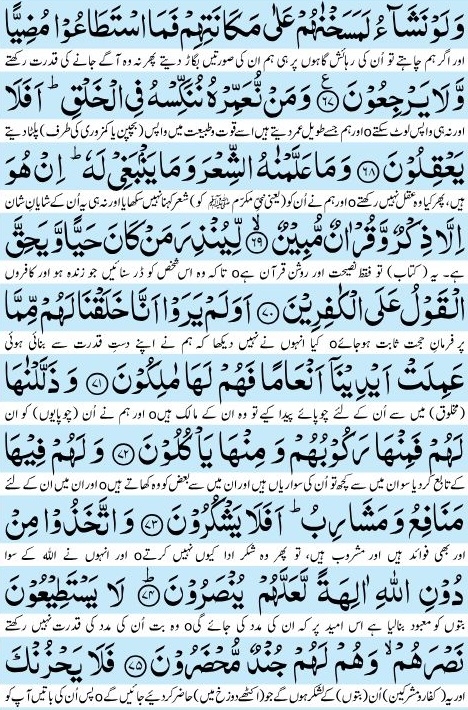 وَلَوْ نَشَآءُ لَمَسَخْنٰهُمْ عَلٰى مَكَانَتِهِمْ فَمَا اسْتَطَاعُوْا مُضِيًّا
اور اگر ہم چاہتے تو اُن کی رہائش گاہوں پر ہی ہم ان کی صورتیں بگاڑ دیتے پھر نہ وہ آگے جانے کی قدرت رکھتے
وَّلَا يَرْجِعُوْنَ ﴿۶۷﴾ ع وَمَنْ نُّعَمِّرْهُ نُنَكِّسْهُ فِى الْخَلْقِ ؕ اَفَلَا
اور نہ ہی واپس لوٹ سکتےo اور ہم جسے طویل عمر دیتے ہیں اسے قوت و طبیعت میں واپس (بچپن یا کمزوری کی طرف) پلٹا دیتے
يَعْقِلُوْنَ ﴿۶۸﴾ وَمَا عَلَّمْنٰهُ الشِّعْرَ وَمَا يَنْۢبَغِىْ لَهٗ ؕ اِنْ هُوَ
ہیں، پھر کیا وہ عقل نہیں رکھتےo اور ہم نے اُن کو (یعنی نبیِ مکرّم ﷺ کو) شعر کہنا نہیں سکھایا اور نہ ہی یہ اُن کے شایانِ شان
اِلَّا ذِكْرٌ وَّقُرْاٰنٌ مُّبِيْنٌ ﴿۶۹﴾ ۙ لِّيُنْذِرَ مَنْ كَانَ حَيًّا وَّيَحِقَّ
ہے۔ یہ (کتاب) تو فقط نصیحت اور روشن قرآن ہےo تاکہ وہ اس شخص کو ڈر سنائیں جو زندہ ہو اور کافروں
الْقَوْلُ عَلَى الْكٰفِرِيْنَ ﴿۷۰﴾ اَوَلَمْ يَرَوْا اَنَّا خَلَقْنَا لَهُمْ مِّمَّا
پر فرمانِ حجت ثابت ہو جائےo کیا انہوں نے نہیں دیکھا کہ ہم نے اپنے دستِ قدرت سے بنائی ہوئی
عَمِلَتْ اَيْدِيْنَاۤ اَنْعَامًا فَهُمْ لَهَا مٰلِكُوْنَ ﴿۷۱﴾ وَذَلَّلْنٰهَا
(مخلوق) میں سے اُن کے لئے چوپائے پیدا کیے تو وہ ان کے مالک ہیںo اور ہم نے اُن (چوپایوں) کو ان
لَهُمْ فَمِنْهَا رَكُوْبُهُمْ وَمِنْهَا يَاْكُلُوْنَ ﴿۷۲﴾ وَلَهُمْ فِيْهَا
کے تابع کر دیا سو ان میں سے کچھ تو اُن کی سواریاں ہیں اور ان میں سے بعض کو وہ کھاتے ہیںo اور ان میں ان کے لئے
مَنَافِعُ وَمَشَارِبُ ؕ اَفَلَا يَشْكُرُوْنَ ﴿۷۳﴾ وَاتَّخَذُوْا مِنْ
اور بھی فوائد ہیں اور مشروب ہیں، تو پھر وہ شکر ادا کیوں نہیں کرتےo اور انہوں نے اللہ کے سوا
دُوْنِ اللّٰهِ اٰلِهَةً لَّعَلَّهُمْ يُنْصَرُوْنَ ﴿۷۴﴾ ؕ لَا يَسْتَطِيْعُوْنَ
بتوں کو معبود بنا لیا ہے اس امید پر کہ ان کی مدد کی جائے گیo وہ بت اُن کی مدد کی قدرت نہیں رکھتے
نَصْرَهُمْ ۙ وَهُمْ لَهُمْ جُنْدٌ مُّحْضَرُوْنَ ﴿۷۵﴾ فَلَا يَحْزُنْكَ
اور یہ (کفار و مشرکین) اُن (بتوں) کے لشکر ہوں گے جو (اکٹھے دوزخ میں) حاضر کر دیئے جائیں گےo پس اُن کی باتیں آپ کو